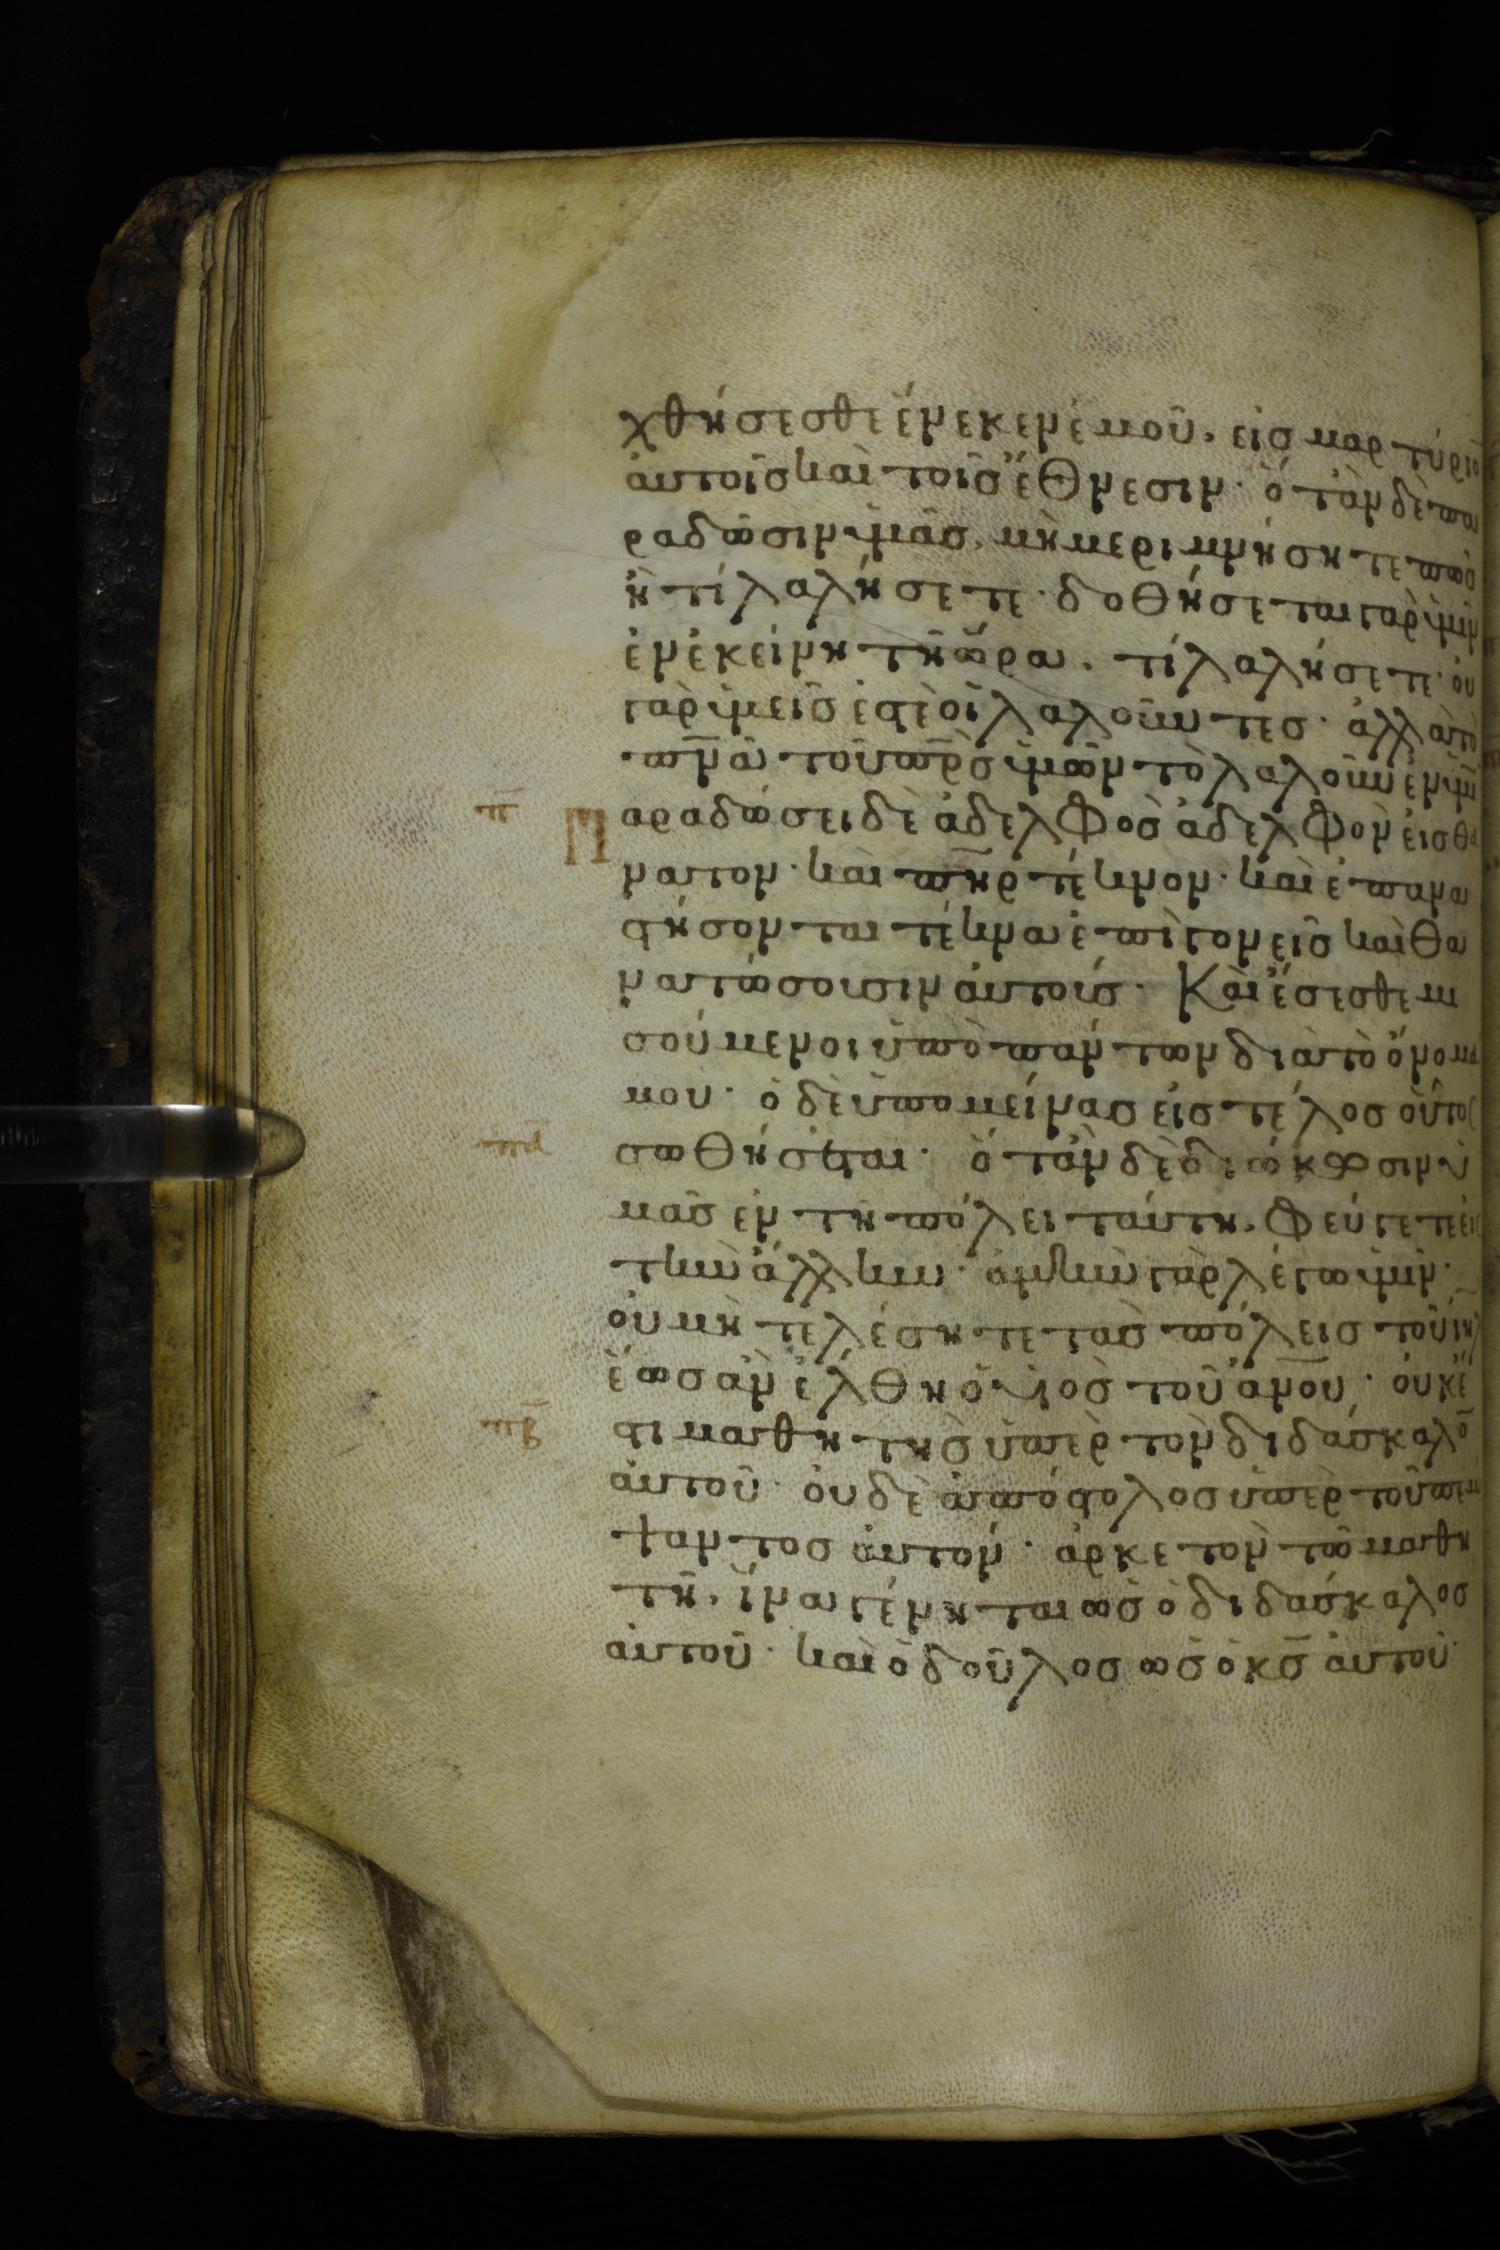 χθήσεσθε ἕνεκεν ἐμοῦ· εἰς μαρτύριον
αὐτοῖς καὶ τοῖς ἔθνεσιν· ὅταν δὲ πα
ραδῶσιν ὑμᾶς, μὴ μεριμνήσητε πῶς
ἢ τί λαλήσετε· δοθήσεται γὰρ ὑμῖν
ἐν ἐκείνη τῆ ὥρα, τί λαλήσετε· οὐ
γὰρ ὑμεῖς ἐστὲ οἱ λαλοῦντες· ἀλλὰ τὸ
πνᾶ τοῦ πρ̅ς ὑμῶν τὸ λαλοῦν ἐν ὑμῖν
πη Παραδώσει δὲ ἀδελφὸς ἀδελφὸν εἰς θά
νατον· καὶ πηρ τέκνον· καὶ ἐπανα
στήσονται τέκνα ἐπὶ γονεῖς καὶ θα
νατώσουσιν αὐτούς· Καὶ ἔσεσθε μι
σούμενοι ὑπὸ πάντων διὰ τὸ ὄνομα
μου· ὁ δὲ ὑπομείνας εἰς τέλος οὗτος
σωθήσεται· ὅταν δὲ διώκωσιν ὑ
μᾶς ἐν τῆ πόλει ταύτη, φεύγετε εἰς
τὴν ἄλλην· ἀμὴν γὰρ λέγω ὑμῖν·
οὐ μὴ τελέσητε τὰς πόλεις τοῦ ιηλ
ἕως ἂν ἔλθη ὁ υἱὸς τοῦ ανου· οὐκ ἔ
στι μαθητὴς ὑπὲρ τὸν διδάσκαλον
αὐτοῦ· οὐδὲ ἀπόστολος ὑπὲρ τοῦ πέμ
ψαντος αὐτόν· ἀρκετὸν τῶ μαθη
τῆ, ἵνα γένηται ὡς ὁ διδάσκαλος
αὐτοῦ· καὶ ὁ δοῦλος ὡς ὁ κς αὐτοῦ·